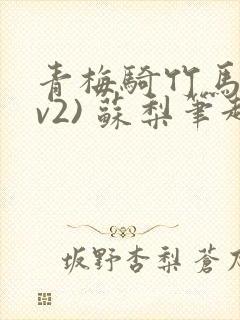 青梅騎竹馬
v2) 蘇梨筆趣
坂野杏梨蒼